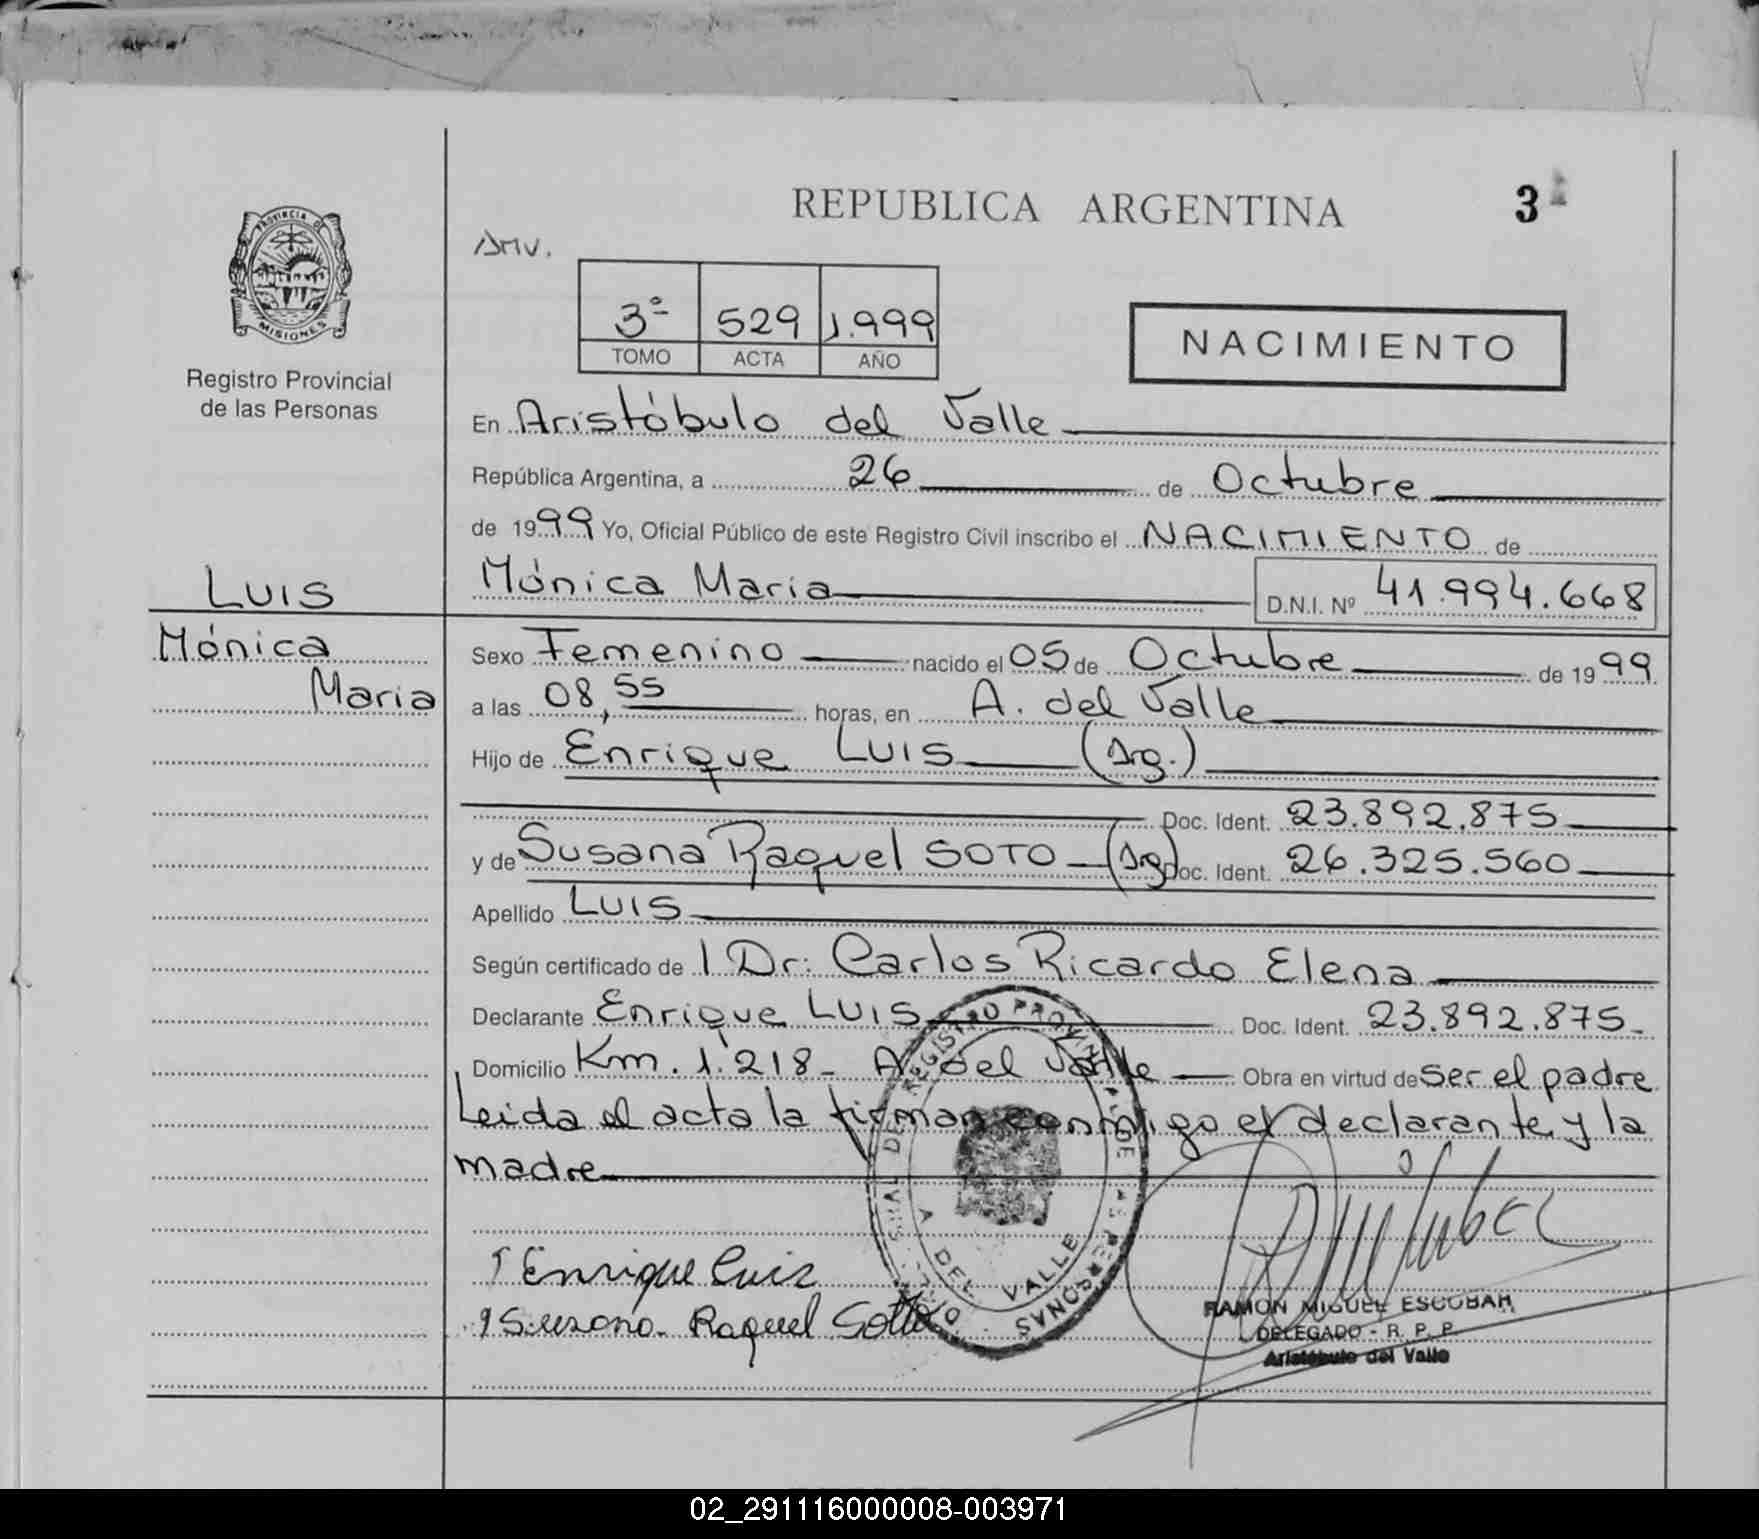 REPUBLICA ARGENTINA 3
PROVINCIA DE
MISIONES
Registro Provincial
de las Personas
3º 529 1.999
TOMO ACTA AÑO
NACIMIENTO
En Aristóbulo del Valle
República Argentina, a 26 de Octubre
de 1999 Yo, Oficial Público de este Registro Civil inscribo el NACIMIENTO de
LUIS
Mónica Maria D.N.I. Nº 41.994.668
Mónica
Maria
Sexo Femenino nacido el 05 de Octubre de 1999
a las 08,55 horas, en A. del Valle
Hijo de Enrique LUIS (Arg.)
Doc. Ident. 23.892.875
y de Susana Raquel SOTO (Arg) Doc. Ident. 26.325.560
Apellido LUIS
Según certificado de l Dr: Carlos Ricardo Elena
Declarante Enrique LUIS Doc. Ident. 23.892.875
Domicilio Km. 1.218 - A. del Valle Obra en virtud de Ser el padre
Leida el acta la firman conmigo el declarante y la
madre
REGISTRO PROVINCIAL DE LAS PERSONAS
A DEL VALLE
Enrique Luis
Susana Raquel Sotto
RAMON MIGUEL ESCOBAR
DELEGADO - R. P. P.
Aristóbulo del Valle
02_291116000008-003971